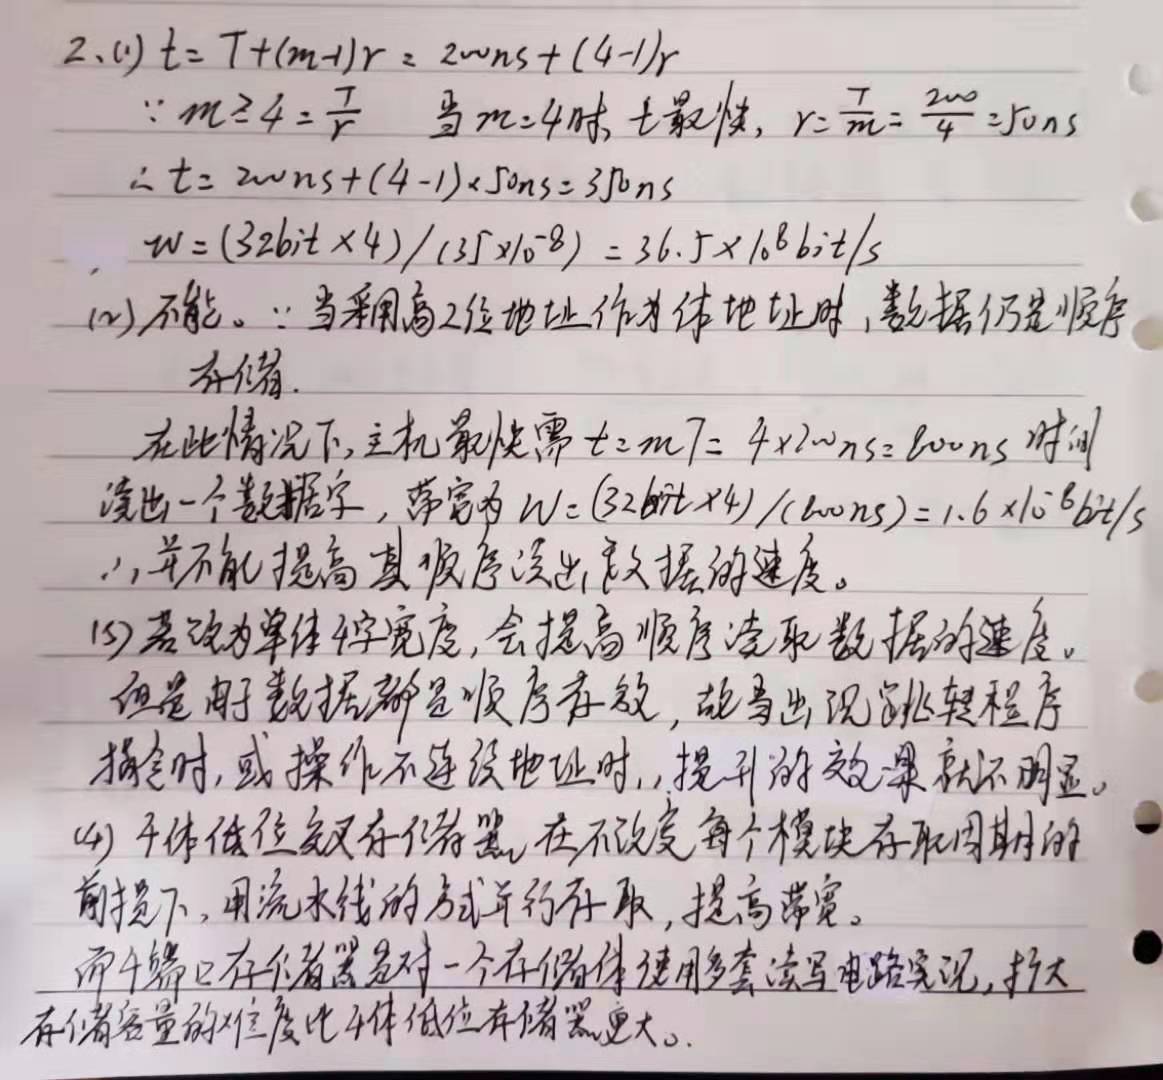 2、(1) t= T+(m-1)r = 200ns+(4-1)r
∵ m≥4=T/r 当m=4时, t最快, r=T/m=200/4=50ns
∴ t=200ns+(4-1)×50ns=350ns
W=(32bit×4)/(35×10⁻⁸)=36.5×10⁸bit/s
(2) 不能。∵当采用高2位地址作为体地址时,数据仍是顺序
存储.
在此情况下,主机最快需t=mT=4×200ns=800ns时间
读出一个数据字,带宽为W=(32bit×4)/(800ns)=1.6×10⁻⁸bit/s
∴并不能提高其顺序读出数据的速度。
(3)若改为单体4字宽度,会提高顺序读取数据的速度。
但是由于数据都是顺序存放,故当出现跳转程序
指令时,或操作不连续地址时,提升的效果就不明显。
(4) 4体低位交叉存储器,在不改变每个模块存取周期的
前提下,用流水线的方式并行存取,提高带宽。
而4端口存储器是对一个存储体使用多套读写电路实现,扩大
存储容量的难度比4体低位存储器更大。